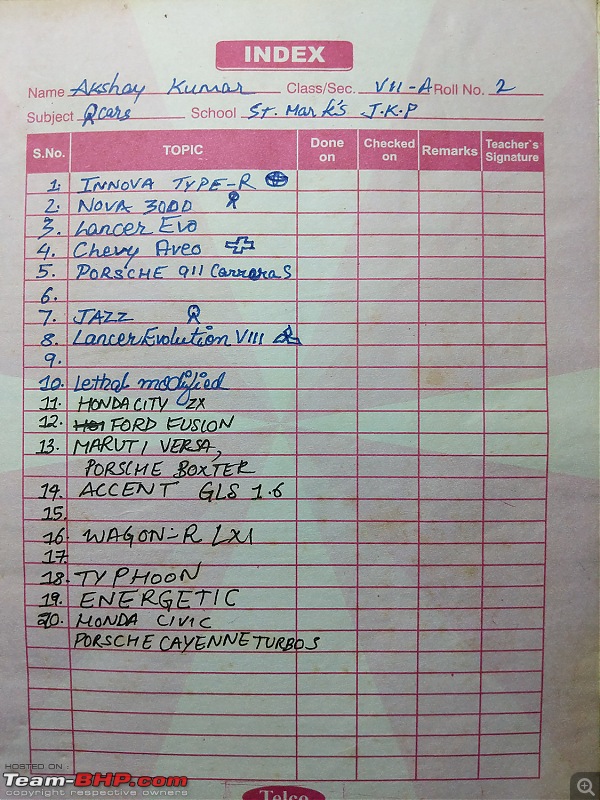 INDEX
Name Akshay Kumar Class/Sec. VII-A Roll No. 2
Subject Cars School St. Mark's J.K.P
S.No. TOPIC Done on Checked on Remarks Teacher's Signature
1. INNOVA TYPE-R
2. NOVA 30DD
3. Lancer Evo
4. Chevy Aveo
5. PORSCHE 911 Carrera S
6.
7. JAZZ
8. Lancer Evolution VIII
9.
10. Lethal modified
11. HONDA CITY ZX
12. FORD FUSION
13. MARUTI VERSA,
PORSCHE BOXTER
14. ACCENT GLS 1.6
15.
16. WAGON-R LXI
17.
18. TYPHOON
19. ENERGETIC
20. HONDA CIVIC
PORSCHE CAYENNE TURBO S
HOSTED ON :
Team-BHP.com
copyright respective owners
Telco